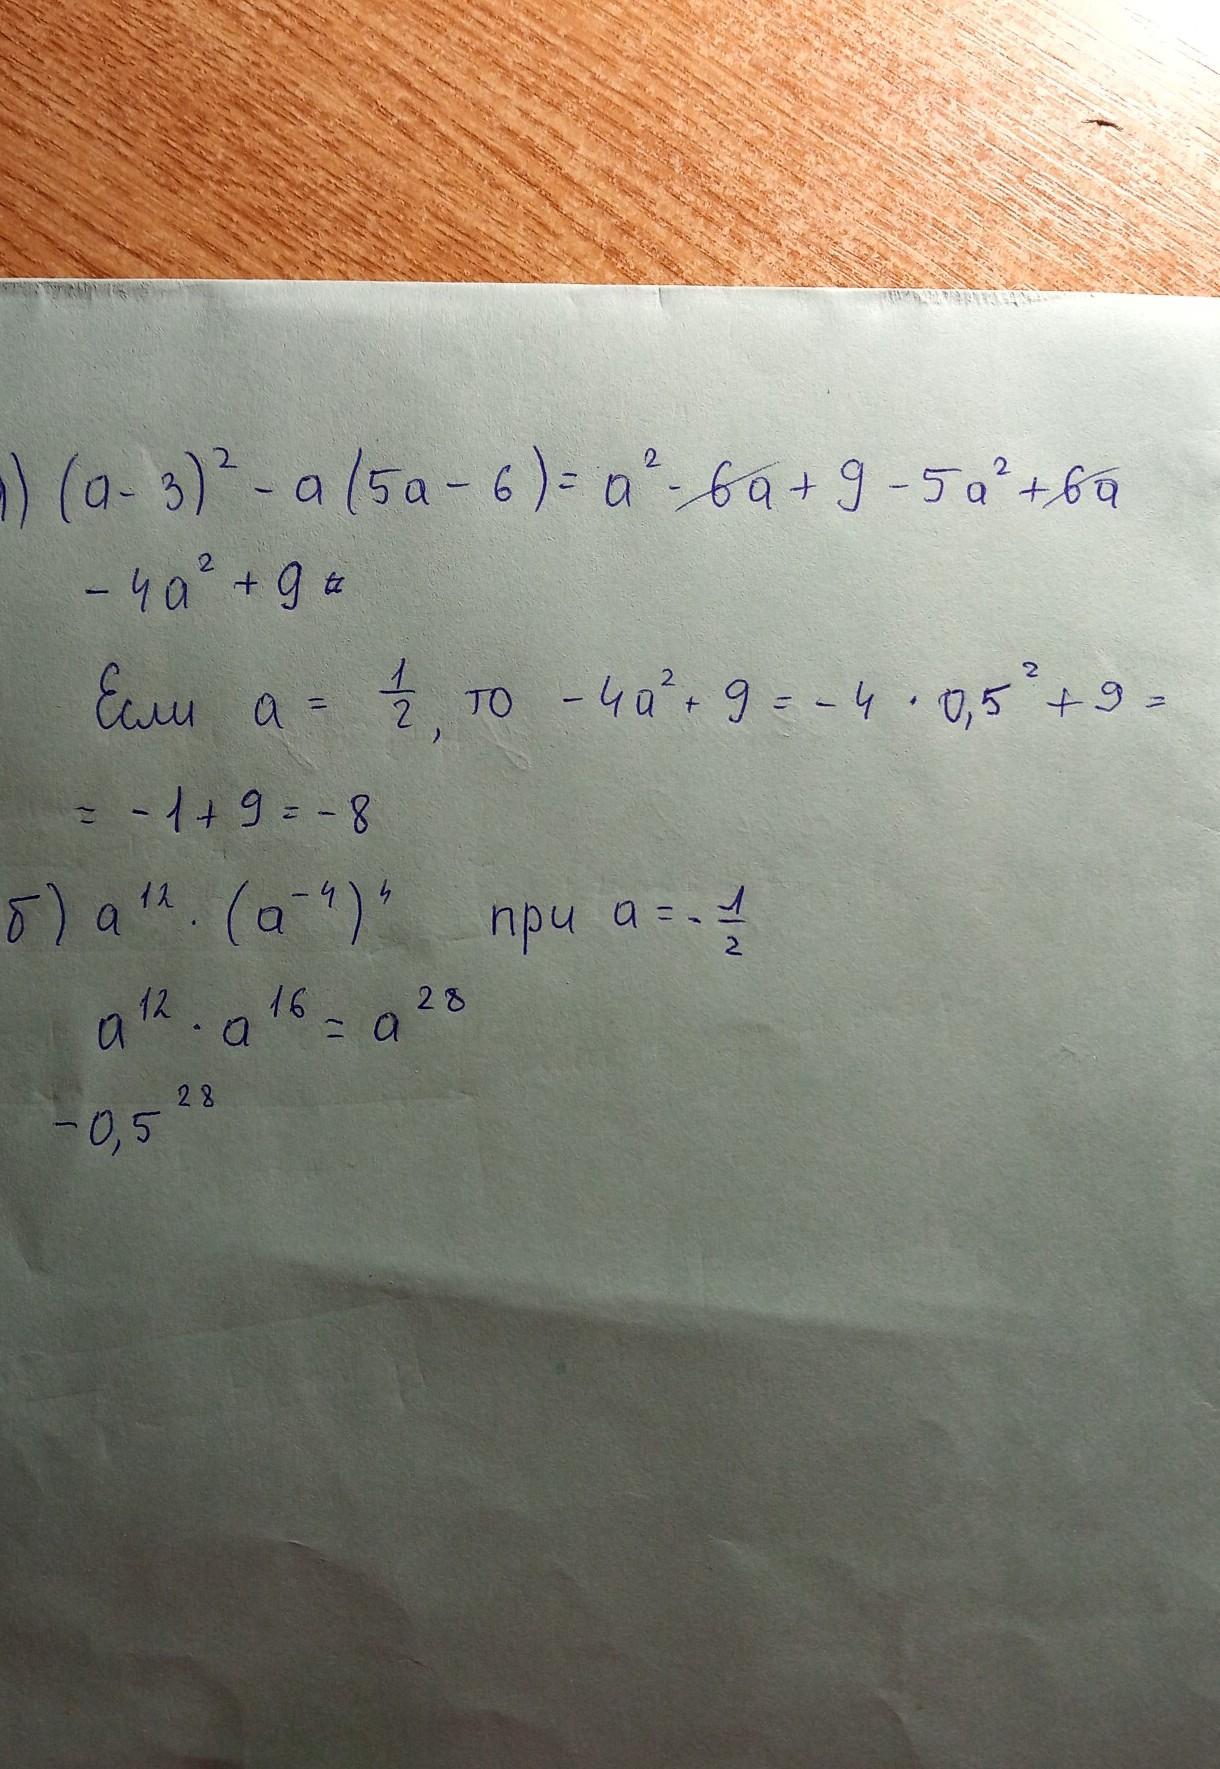 а) (a - 3)² - a (5a - 6) = a² - 6a + 9 - 5a² + 6a
- 4a² + 9
Если a = 1/2, то - 4a² + 9 = - 4 · 0,5² + 9 =
= - 1 + 9 = - 8
б) a¹² · (a⁻⁴)⁴ при a = - 1/2
a¹² · a¹⁶ = a²⁸
- 0,5²⁸